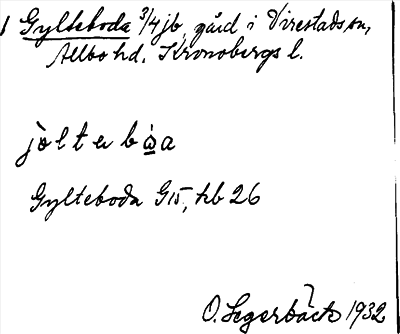 1 Gylteboda 3/4 jb, gård i Virestads sn,
Allbo hd. Kronobergs l.
jòltabóa
Gylteboda G15, hb 26
O. Segerbäck 1932